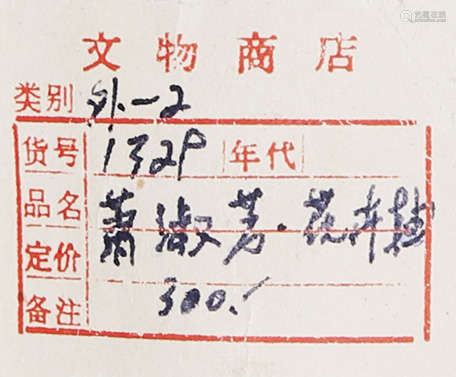 文物商店
类别 外一2
货号 1329 年代
品名 萧淑芳·花卉轴
定价 300.
备注